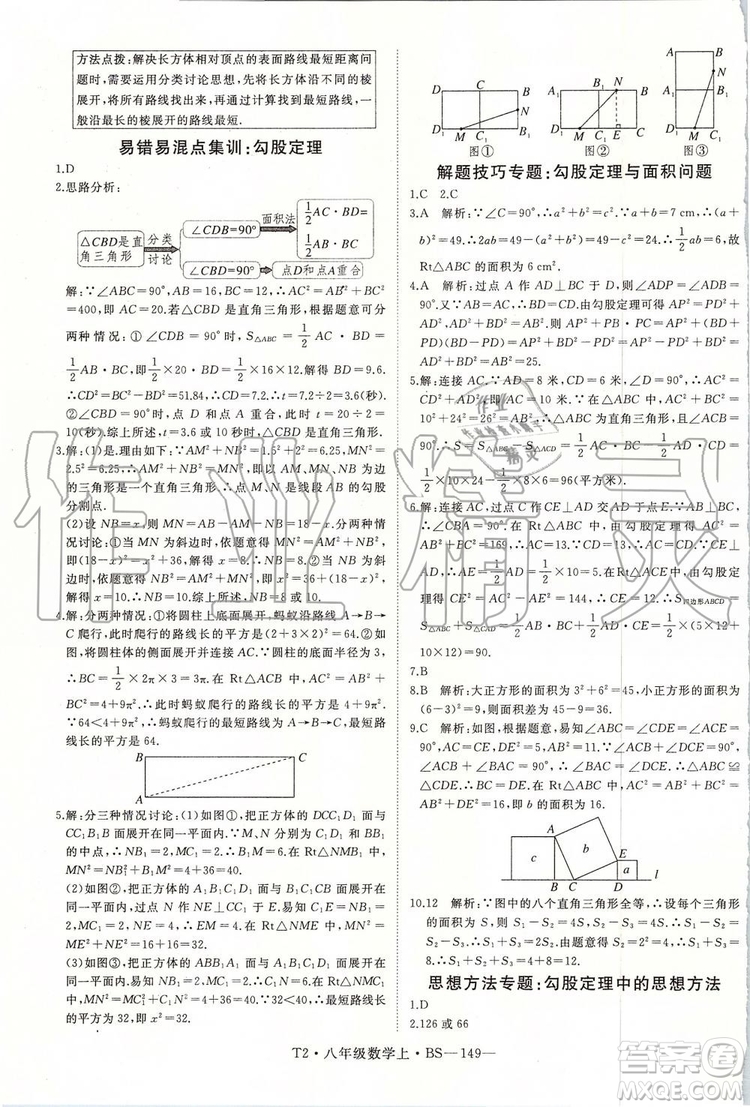 方法点拨:解决长方体相对顶点的表面路线最短距离问
题时,需要运用分类讨论思想,先将长方体沿不同的棱
展开,将所有路线找出来,再通过计算找到最短路线,一
般沿最长的棱展开的路线最短.
易错易混点集训:勾股定理
1.D
2.思路分析:
△CBD是直
角三角形
分类
讨论
∠CDB=90°
面积法
1/2 AC·BD=
1/2 AB·BC
∠CBD=90°
点D和点A重合
解:∵∠ABC=90°,AB=16,BC=12,∴AC²=AB²+BC²
=400,即AC=20.若△CBD是直角三角形,根据题意可分
两种情况:①∠CDB=90°时,S△ABC=1/2 AC·BD=
1/2 AB·BC,即1/2×20·BD=1/2×16×12,解得BD=9.6.
∴CD²=BC²-BD²=51.84,CD=7.2,t=7.2÷2=3.6(秒).
②∠CBD=90°时,点D和点A重合,∴t=20÷2=
10(秒).综上所述,t=3.6或10秒时,△CBD是直角三角形.
3.解:(1)是.理由如下:∵AM²+NB²=1.5²+2²=6.25,MN²=
2.5²=6.25,∴AM²+NB²=MN².∴以AM、MN、NB为边
的三角形是一个直角三角形.∴点M、N是线段AB的勾股
分割点.
(2)设BN=x,则MN=AB-AM-NB=18-x.分两种情
况讨论:①当MN为最长线段时,依题意MN²=AM²+
NB²,即(18-x)²=x²+36,解得x=8.②当NB为最长
线段时,依题意NB²=AM²+MN²,即x²=36+(18-x)²,
解得x=10.综上所述,BN=8或10.
4.解:分两种情况:①将圆柱上底面展开,蚂蚁沿路线A→B→
C爬行,此时爬行的路线长的平方是(2+3×2)²=64.②
如图,将圆柱体的侧面展开.∵圆柱体的底面半径为3,
∴BC=1/2×2π×3=3π.在Rt△ABC中,AC²=AB²+
BC²=4+9π².∴蚂蚁爬行的路线长的平方是4+9π².
∵64<4+9π²,∴蚂蚁爬行的最短路线为A→B→C,最短路
线长的平方是64.
B
C
A
5.解:分三种情况讨论:(1)如图①,把正方体的DCC₁D₁面
与CC₁B₁B面展开在同一平面内.∵M、N分别是C₁D₁和BB₁
的中点,∴NB₁=2,MC₁=2.∴在Rt△NMB₁中,
MN²=NB₁²+MB₁²=4+36=40.
(2)如图②,把正方体的A₁B₁C₁D₁面与CC₁B₁B面展
开在同一平面内,过点N作NE⊥C₁D₁于E.∵NB₁=2,
MC₁=2,NE=4,∴ME=4.∴在Rt△NME中,MN²=
NE²+ME²=16+16=32.
(3)如图③,把正方体的A₁B₁C₁D₁面与ABB₁A₁面展开
在同一平面内,连接MN,与(2)同理可得MN²=32.
∵32<40,∴蚂蚁从点M沿正方体的表面爬到点N的最短
路程的平方为32,即x²=32.故以x为边长的正方形的面
积为32.
D
C
B
N
D₁
M
C₁
B₁
图①
图②
图③
解题技巧专题:勾股定理与面积问题
1.C 2.C
3.A 解析:∵∠C=90°,∴a²+b²=c²=25.∵a+b=7 cm,∴(a+
b)²=49.∴2ab=49-(a²+b²)=49-25=24.∴1/2 ab=6.故
Rt△ABC的面积为6 cm².
4.A 解析:过点A作AD⊥BC于D,则∠ADP=∠ADB=
90°.又∵AB=AC,∴BD=CD.由勾股定理可得AP²=PD²+
AD²,∴AP²+PB·PC=AP²+(BD+PD)(CD-PD)=
AD²+BD²=AB²=25.
5.解:连接AC.∵AD=8米,CD=6米,∠ADC=90°,∴AC=
10米.∵AB=26米,BC=24米,∴AC²+BC²=
10²+24²=26²=AB².∴△ABC是直角三角形,∠ACB=
90°.∴S=S△ABC-S△ACD=1/2 AC·BC-1/2 AD·CD=
1/2×10×24-1/2×8×6=96(平方米).
6.解:连接AC,过点C作CE⊥AD交AD于点E.∵AB⊥BC,
∴∠CBA=90°.在Rt△ABC中,由勾股定理得AC²=AB²+
BC²=5²+12²=13²,∴AC=13.∵CD=13,∴AC=CD.
∵CE⊥AD,∴AE=1/2 AD=1/2×10=5.在Rt△ACE中,由勾股
定理得CE²=AC²-AE²=13²-5²=12²,∴CE=12.∴S四边形ABCD=
S△ABC+S△CAD=1/2 AB·BC+1/2 AD·CE=1/2×(5×12+
10×12)=90.
7.B
8.B 解析:大正方形的面积为3²+6²=45,小正方形的面积为
(6-3)²=9,则面积差为45-9=36.
9.C 解析:如图,根据题意,易知∠ABC=∠CDE=∠ACE=
90°,AC=CE,DE²=5,AB²=11.易证△ABC≌
△CDE,∴BC=DE.在Rt△ABC中,由勾股定理得AC²=
AB²+BC²=AB²+DE²=16,即b的面积为16.
A
c
b
E
a
B
C
D
10.12 解析:∵图中的八个直角三角形全等,∴设每个三角形
的面积为S,则S₁-S₂=4S,S₂-S₃=4S.∴S₁-S₂=
S₂-S₃.
思想方法专题:勾股定理中的思想方法
1.D
2.126或66
T2·八年级数学上·BS—149—
作业精灵
答案圈
MXQE.COM